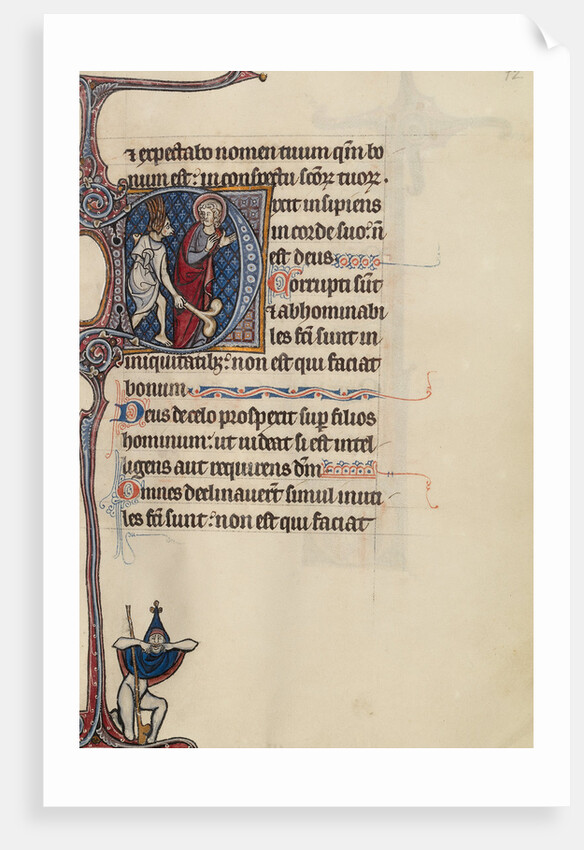 52
⁊ expectabo nomen tuum qm̄ bo
num est: in conspectu sc̄oꝝ tuoꝝ.
Dixit insipiens
in corde suo: n̄
est deus
Corrupti sūt
⁊ abhominabi
les fc̄i sunt in
iniquitatibꝫ: non est qui faciat
bonum
Deus de celo prosperit suꝑ filios
hominum: ut uideat si est intel
ligens aut requirens dm̄
Omnes declinauer̄t simul inuti
les fc̄i sunt: non est qui faciat